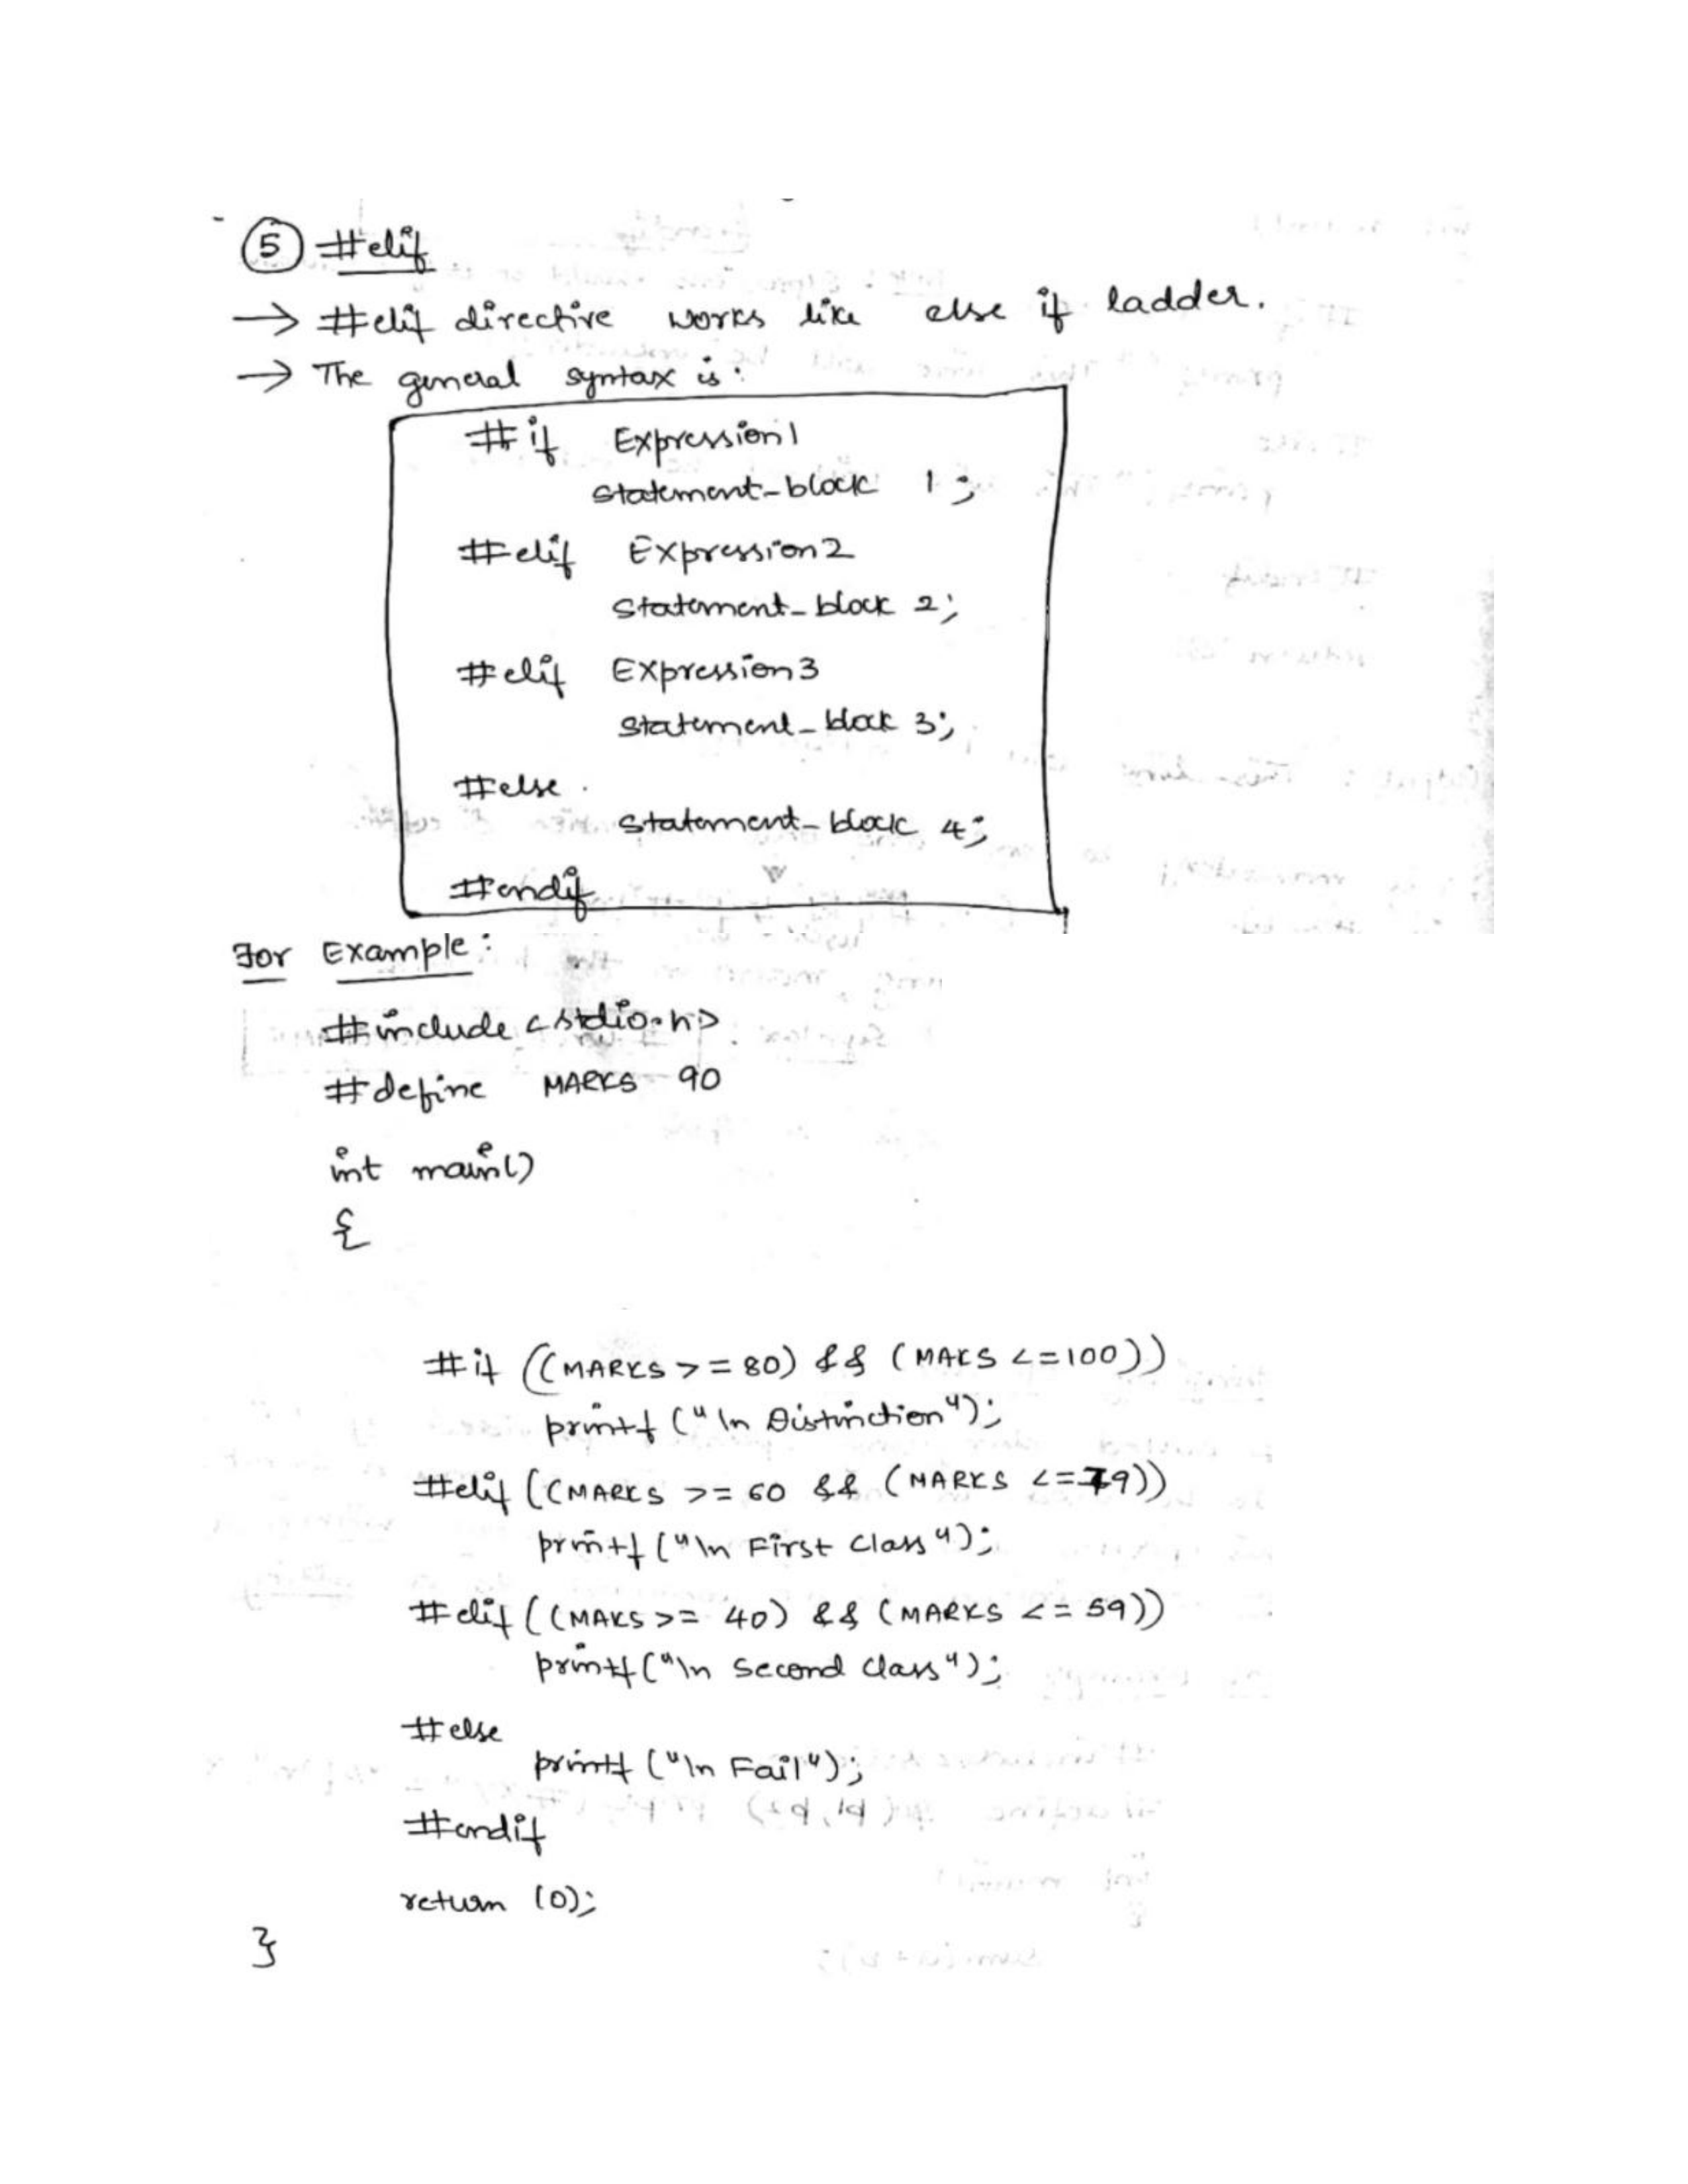 5 #elif
→ #elif directive works like else if ladder.
→ The general syntax is:
#if Expression1
statement_block 1;
#elif Expression2
statement_block 2;
#elif Expression3
statement_block 3;
#else
statement_block 4;
#endif
For Example:
#include <stdio.h>
#define MARKS 90
int main()
{
#if ((MARKS >= 80) && (MAKS <=100))
printf ("\n Distinction");
#elif ((MARKS >= 60 && (MARKS <=79))
printf ("\n First Class");
#elif ((MAKS >= 40) && (MARKS <= 59))
printf ("\n Second Class");
#else
printf ("\n Fail");
#endif
return (0);
}